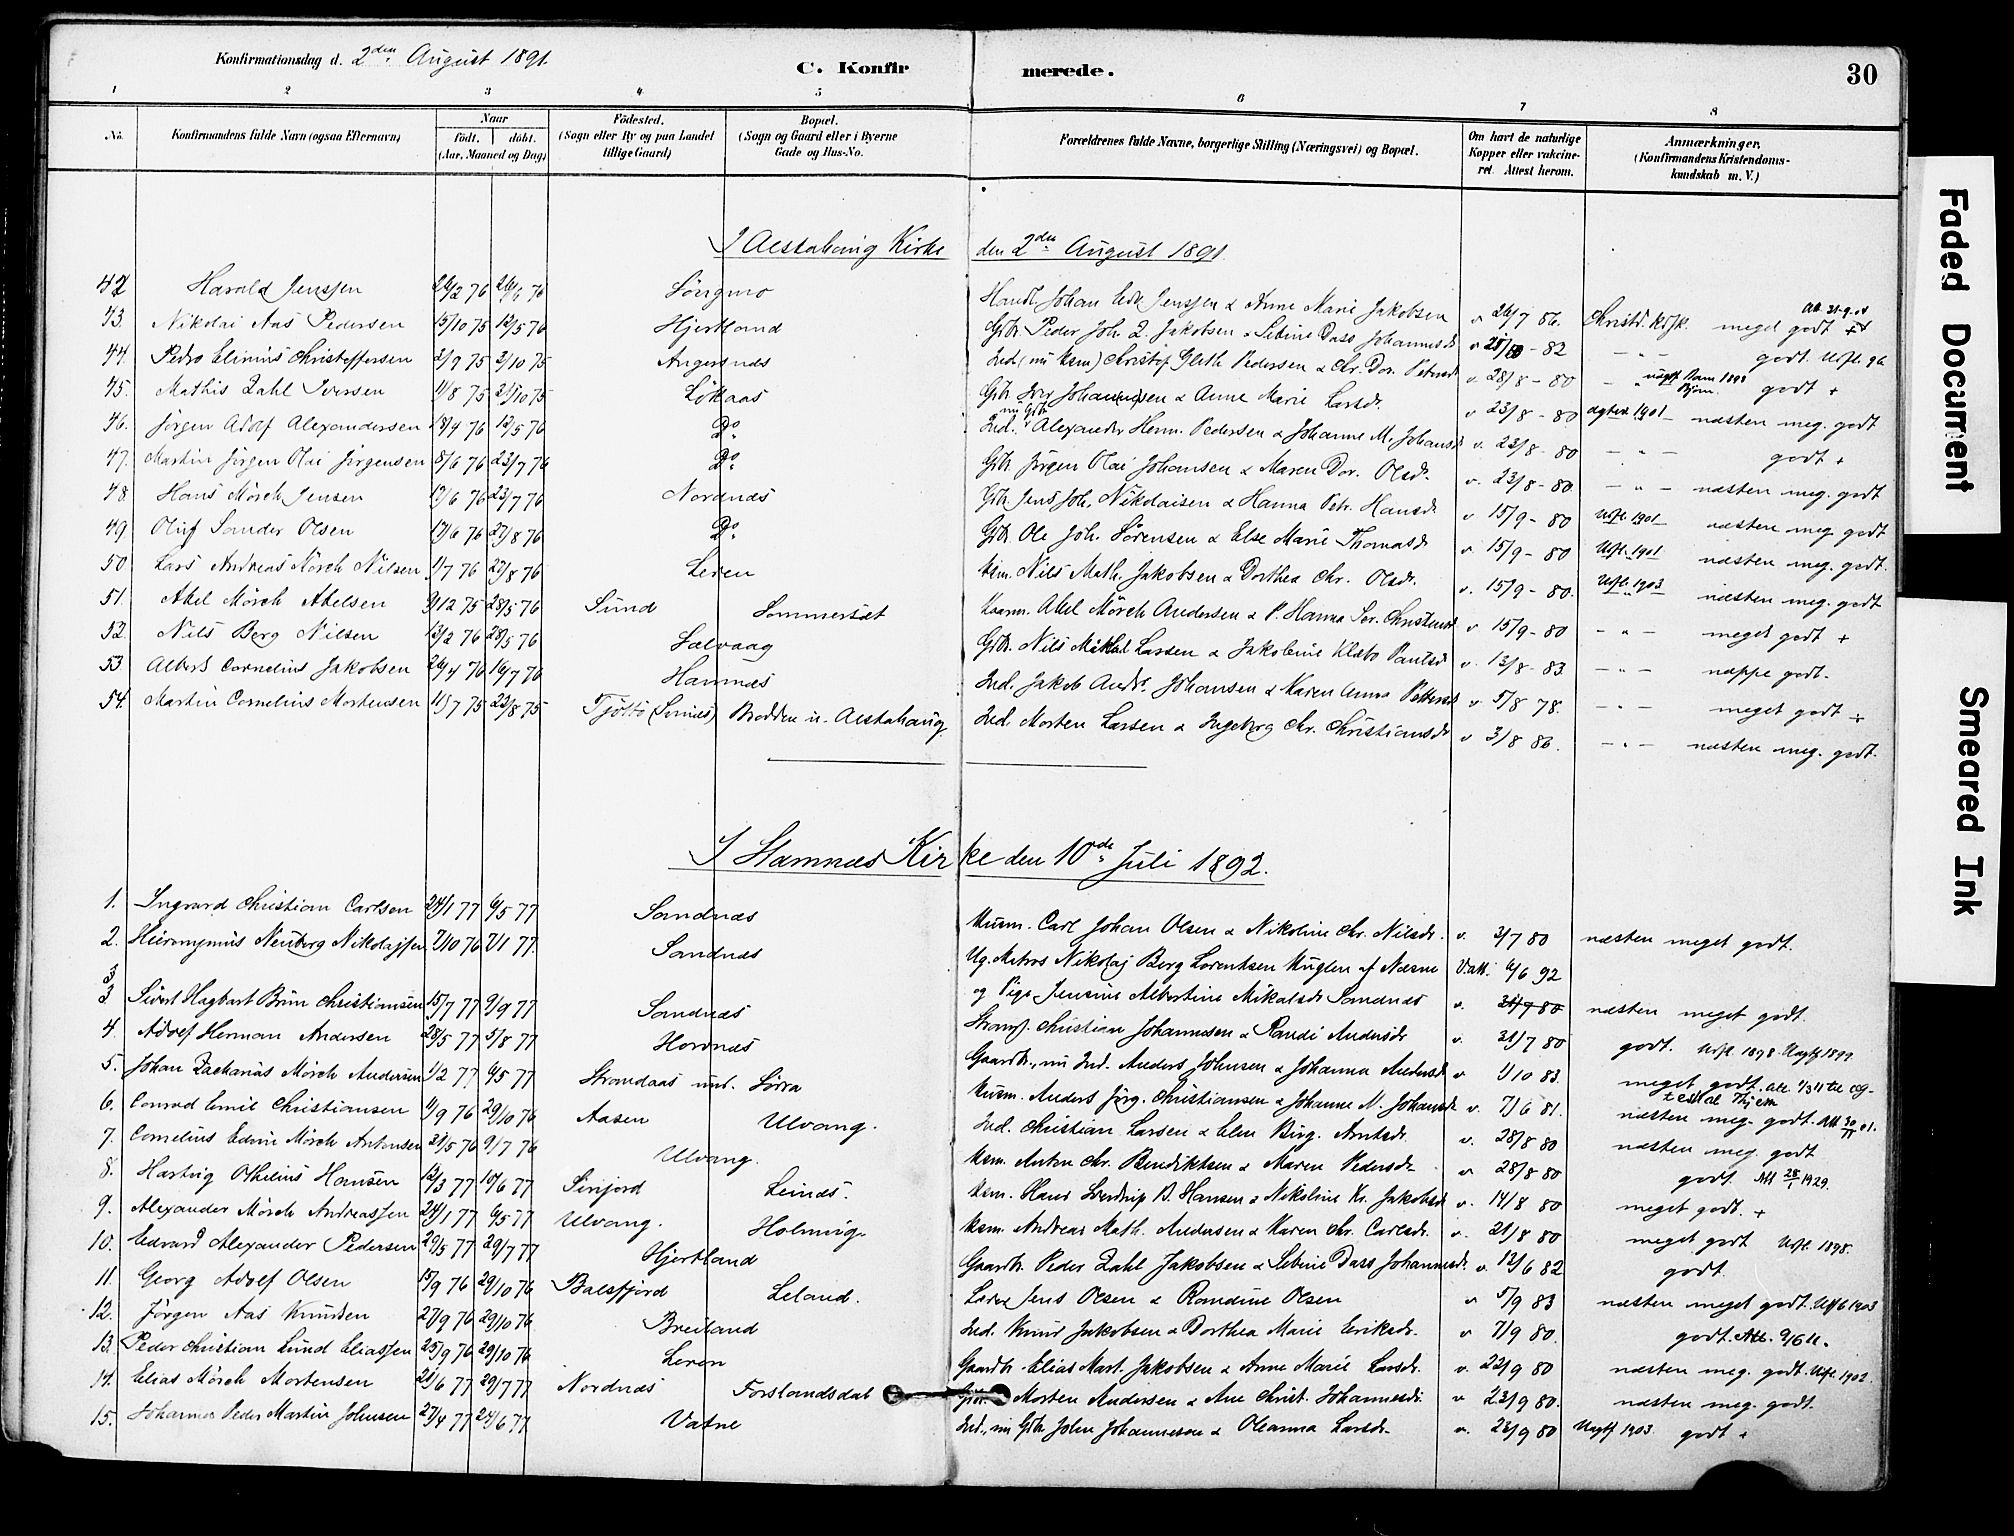 Konfirmationsdag d. 2den August 1891.
C. Konfirmerede.
30
1 2 3 4 5 6 7 8
No. Konfirmandens fulde Navn (ogsaa Efternavn) Naar født. døbt. (Aar, Maaned og Dag) Fødested. (Sogn eller By og paa Landet tillige Gaard) Bopæl. (Sogn og Gaard eller i Byerne Gade og Hus-No. Forældrenes fulde Navne, borgerlige Stilling (Næringsvei) og Bopæl. Om havt de naturlige Kopper eller vakcineret. Attest herom. Anmærkninger. (Konfirmandens Kristendomskundskab m. V.)
I Alstahaug Kirke den 2den August 1891
42 Harald Jenssen 26/2 76 Söngmo Handl. Johan Jenssen & Anne Marie Jakobsen v 26/7 86. Christd. kdsk. meget godt
43. Nikolai Aas Pedersen 15/10 75 12/5 76 Hjertland Gbr. Peder Joh. Z. Jakobsen & Sebine Dass Johannesdr v - 82 - " - godt. Utfl. 96
44. Pedro Elinius Christoffersen 2/9 75 3/10 75 Angersnes Ind. (nu Hsm) Christof Pedersen & Chr. Dor. Petersdr v. 28/8 - 80 - godt +
45. Mathis Zahl Iversen 1/8 75 Lökaas Gbr. Iver Johannesen & Anne Marie Larsdr. v 23/8 - 80 1901 næsten meg. godt
46. Jörgen Adolf Alexandersen 18/4 76 12/5 76 Do. Ind. nu Gbr. Alexander Herm. Pedersen & Johanne M. Johansdr v. 23/8 - 80 - " - godt +
47. Martin Jörgen Olai Jörgensen 8/6 76 23/7 76 Do. Gbr. Jörgen Olai Johansen & Maren Dor. Olsdr. v. 23/8 - 80 - " - næsten meg. godt
48 Hans Mörch Jensen 17/6 76 23/7 76 Nordnæs Gbr. Jens Joh. Nikolaisen & Hanna Petr. Hansdr v 15/9 - 80 Utfl. 1901 næsten meg godt
49 Oluf Sander Olsen 17/6 76 27/8 76 Do. Gbr. Ole Joh. Sörensen & Else Marie Thomasdr v 15/9 - 80 Utfl. 1901 næsten meg. godt.
50 Lars Andreas Mörch Nilsen 1/7 76 27/8 76 Leren Hsm. Nils Math. Jakobsen & Dorthea Chr. Olsdr. v. 15/9 - 80. Utfl. 1903 næsten meg. godt
51. Abel Mörch Abelsen 9/12 75 28/5 76 Sund Sommersæt Husm. Abel Mörch Andersen & P. Hanna Ser. Christensdr v 15/9 - 80 - " - meget godt +
52. Nils Berg Nilsen 13/2 76 28/5 76 Sælvaag Gbr. Nils Mikkel Larsen & Jakobine Klæbo Paulsdr v. 13/8 - 83. - " - næppe godt.
53 Albert Cornelius Jakobsen 26/4 76 16/7 76 Hamnæs Ind. Jakob Andr. Johansen & Karen Anna Pettersdr v 5/8 78. - " - meget godt +
54. Martin Cornelius Mortensen 11/7 75 22/8 75 Tjöttö Brodden u. Alstahaug Ind. Morten Larsen & Ingeborg Chr. Christiansdr v 3/8 86. - " - næsten meg. godt.
I Stamnæs Kirke den 10de Juli 1892.
1. Ingvard Christian Carlsen 24/1 77 6/5 77 Sandnæs Husm. Carl Johan Olsen & Nikoline Chr. Nilsdr. v. 3/7 80 næsten meget godt.
2. Hieronymus Nenberg Nikolajsen 7/10 76 7/1 77. Sandnæs Ug. Matros Nikolaj Berg Lorentsen Kuglen af Næsne V.att. 6/6 92
og Pige Jensine Albertine Mikalsdr Sandnæs v. næsten meget godt.
3 Sivert Hagbart Brun Christiansen 15/7 77 9/9 77 Sandnæs Christian Johannesen & Randi Andersdr v. 31/7 80 godt. Utfl. 1898. 1899
4. Adolf Herman Andersen 28/5 77 5/8 77 Hornæs Gaardbr., nu Ind. Anders Johnsen & Johanna Andersdr v 1/10 83. meget godt. att. 1/3 11 til
5. Johan Zacharias Mörch Andersen 1/2 77 6/5 77 Strandaas und. Sörra Husm. Anders Jörg. Christiansen & Johanne M. Johansdr v. 7/6 81. næsten meg. godt. Att 30/11 01.
6. Conrad Emil Christiansen 11/9 76 29/10 76 Aasen Ulvang. Ind. Christian Larsen & Elen Birg. Arntsdr. v. 28/8 80 næsten meg. godt
7. Cornelius Edvin Mörch Antonsen 21/5 76 9/7 76 Ulvang. Hsm. Anton Chr. Benediktsen & Maren Pedersdr v 28/8 80 godt. Att 28/1 1929.
8. Hartvig Othelius Hansen 13/3 77 10/6 77 Sirifjord Leinæs. Hsm. Hans B. Hansen & Nikoline Kr. Jakobsdr v. 14/8 80 meget godt. +
9. Alexander Mörch Andreassen 24/1 77 6/5 77 Ulvang. Holmvig Hsm. Andreas Math. Andersen & Karen Chr. Carlsdr. v. 21/8 80 meget godt Utfl. 1898.
10. Edvard Alexander Pedersen 29/5 77 29/7 77 Hjertland Gaardbr. Peder Zahl Jakobsen & Sebine Dass Johannesdr. v. 12/6 82 godt.
11. Georg Adolf Olsen 15/9 76 29/10 76 Balsfjord Leland. Lærer Jens Olsen & Romdine Olsen v 5/9 83 næsten meget godt. 1903
12. Jörgen Aas Knudsen 27/9 76 29/10 76 Breiland Ind. Knud Jakobsen & Dorthea Marie Eriksdr. v 7/9 80. godt. Att. 9/6 11.
13. Peder Christian Lund Eliassen 25/9 76 29/10 76 Leren Gaardbr. Elias Mart. Jakobsen & Anne Marie Larsdr. v. 22/9 80 næsten meg. godt. Utfl. 1902.
14. Elias Mörch Mortensen 21/6 77 29/7 77 Nordnæs Forslandsdal Gbr. Morten Andersen & Ane Christ. Johannesdr. v 23/9 80. næsten meg. godt.
15. Johannes Peder Martin Johnsen 27/4 77 24/6 77 Vatne Ind., nu Gbr. John Johannesen & Oleanna Larsdr. v. 23/9 80 1903. godt +
Faded Document
Smeared Ink